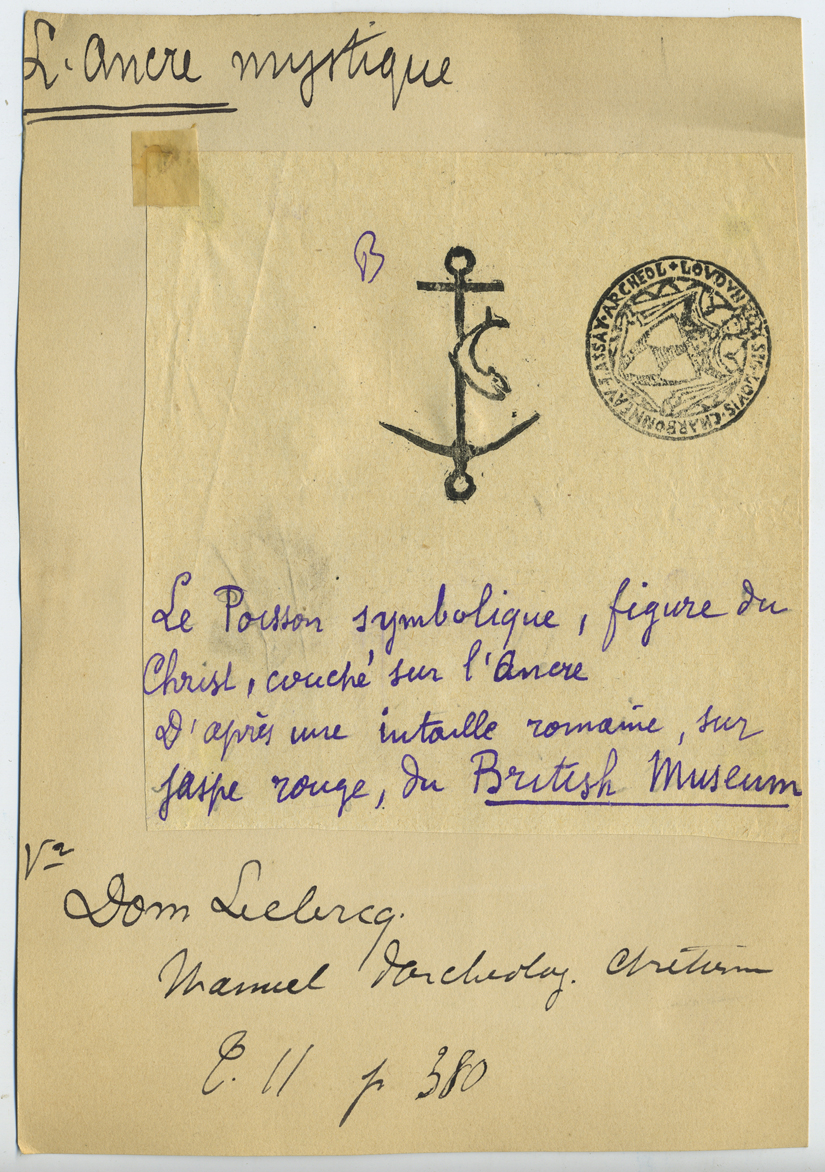 L'Ancre mystique
B
ARCHEOL + LOVDVN
SIG·LOVIS·CHARBONNEAV·LASSAY·
Le Poisson symbolique, figure du
Christ, couché sur l'Ancre
D'après une intaille romaine, sur
jaspe rouge, du British Museum
Vr
Dom Leclercq.
Manuel d'archeolog. chrétienne
T. II p 380